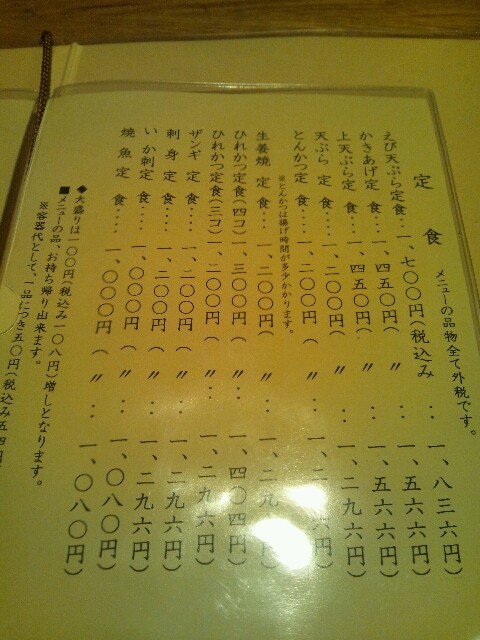 メニューの品物全て外税です。
定食
えび天ぷら定食‥一、七〇〇円(税込み‥一、八三六円)
かきあげ定食‥一、四五〇円(〃‥一、五六六円)
上天ぷら定食‥一、四五〇円(〃‥一、五六六円)
天ぷら定食‥一、二〇〇円(〃‥一、二九六円)
とんかつ定食‥一、二〇〇円(〃‥一、二 六円)
※とんかつは揚げ時間が多少かかります。
生姜焼定食‥一、二〇〇円(〃‥一、二九
ひれかつ定食(四コ)一、三〇〇円(〃‥一、四〇四円)
ひれかつ定食(三コ)一、二〇〇円(〃‥一、二九六円)
ザンギ定食‥一、二〇〇円(〃‥一、二九六円)
刺身定食‥一、二〇〇円(〃‥一、二九六円)
いか刺定食‥一、〇〇〇円(〃‥一、〇八〇円)
焼魚定食‥一、〇〇〇円(〃‥一、〇八〇円)
◆大盛りは一〇〇円(税込み一〇八円)増しとなります。
■メニューの品、お持ち帰り出来ます。
※容器代として、一品につき五〇円(税込み五四円